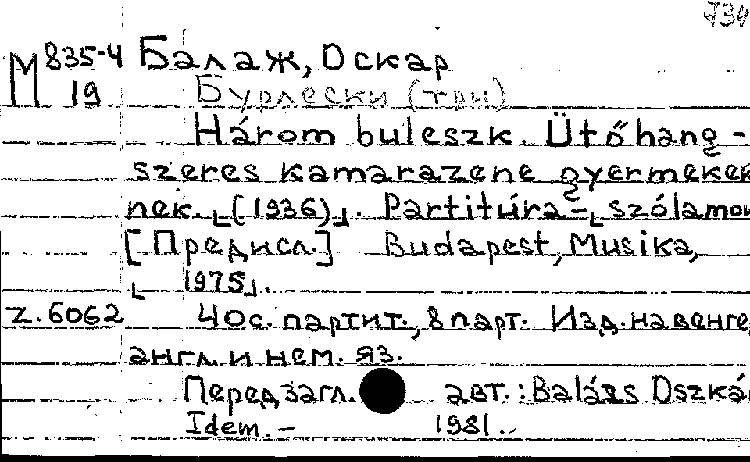 734
M 835-4 Балаж, Оскар
19 Бурлески (три)
Három buleszk. Ütőhang-
szeres kamarazene gyermekek
nek. [(1936)]. Partitúra – szólamok
[Предисл.] Budapest, Musika,
[1975].
Z.6062 40с. партит., 8 парт. Изд. на венге,
англ. и нем. яз.
Перед загл. авт.: Balázs Oszká
Idem. – 1981..